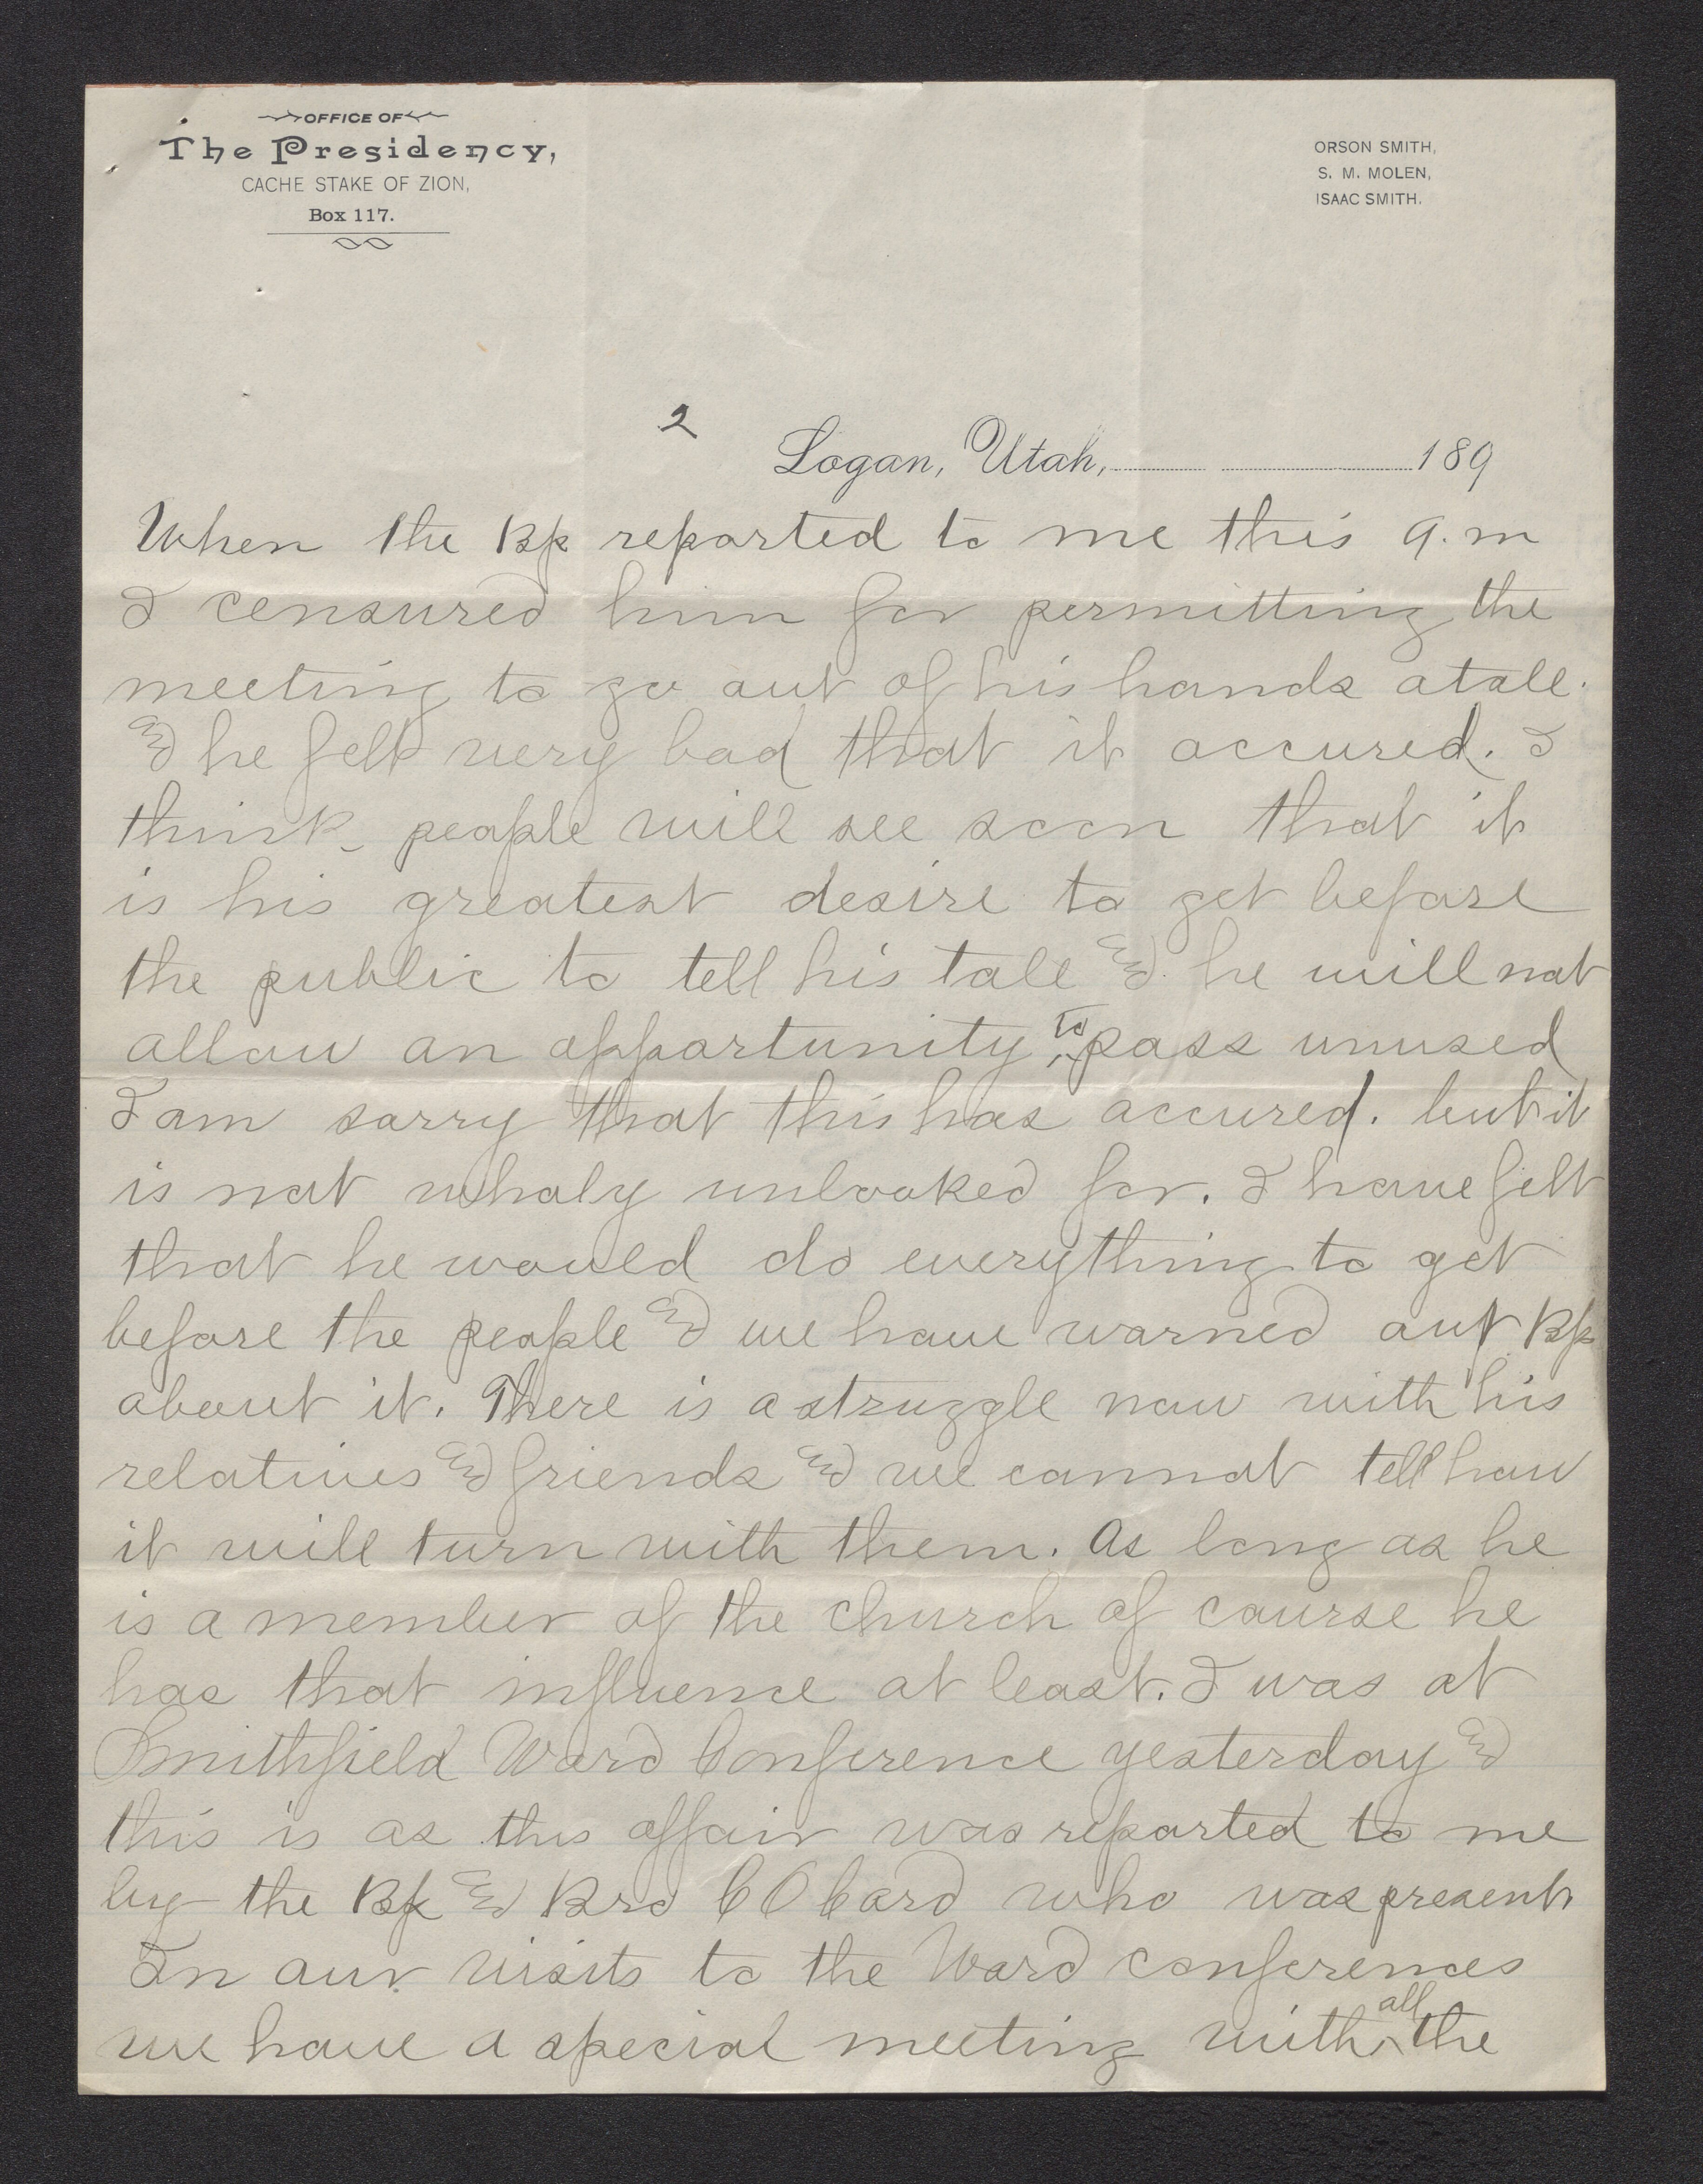 OFFICE OF
The Presidency,
CACHE STAKE OF ZION,
Box 117.
ORSON SMITH,
S. M. MOLEN,
ISAAC SMITH.
2
Logan, Utah, 189
When the Bp reported to me this a.m
I censured him for permitting the
meeting to go out of his hands atall.
& he felt very bad that it occured. I
think people will see soon that it
is his greatest desire to get before
the public to tell his tale & he will not
allow an opportunity to pass unused
I am sorry that this has occured. but it
is not wholy unlooked for. I have felt
that he would do everything to get
before the people & we have warned our Bp
about it. There is a struggle now with his
relatives & friends & we cannot tell how
it will turn with them. As long as he
is a member of the church of course he
has that influence at least. I was at
Smithfield Ward Conference yesterday &
this is as this affair was reported to me
by the Bp & Bro C O Card who was present
In our visits to the Ward conferences
we have a special meeting with all the